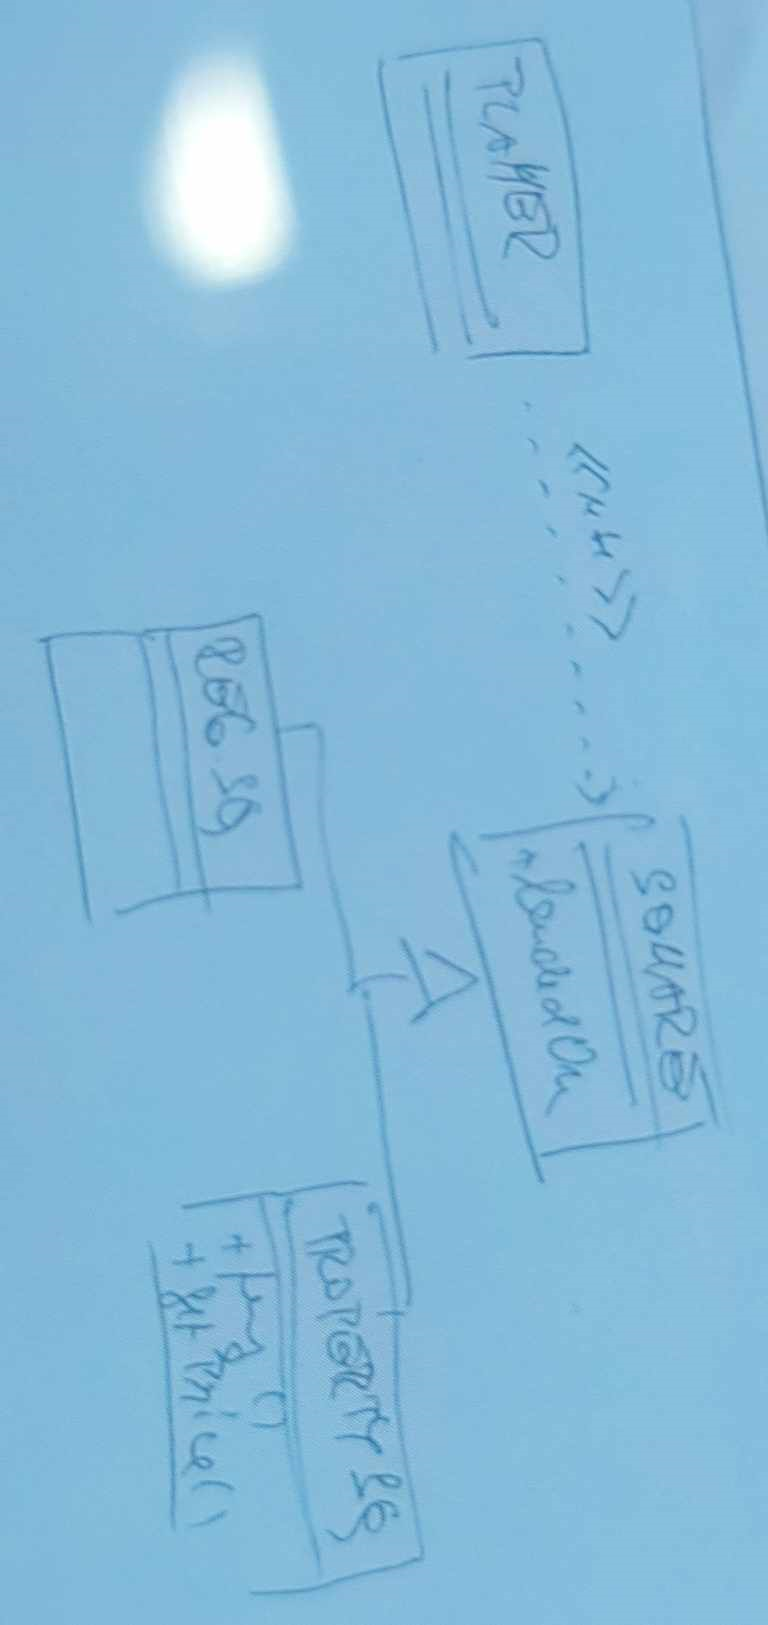 PLAYER
SQUARE
+ landedOn
REG. SQ
PROPERTY SQ
+ getPrice()